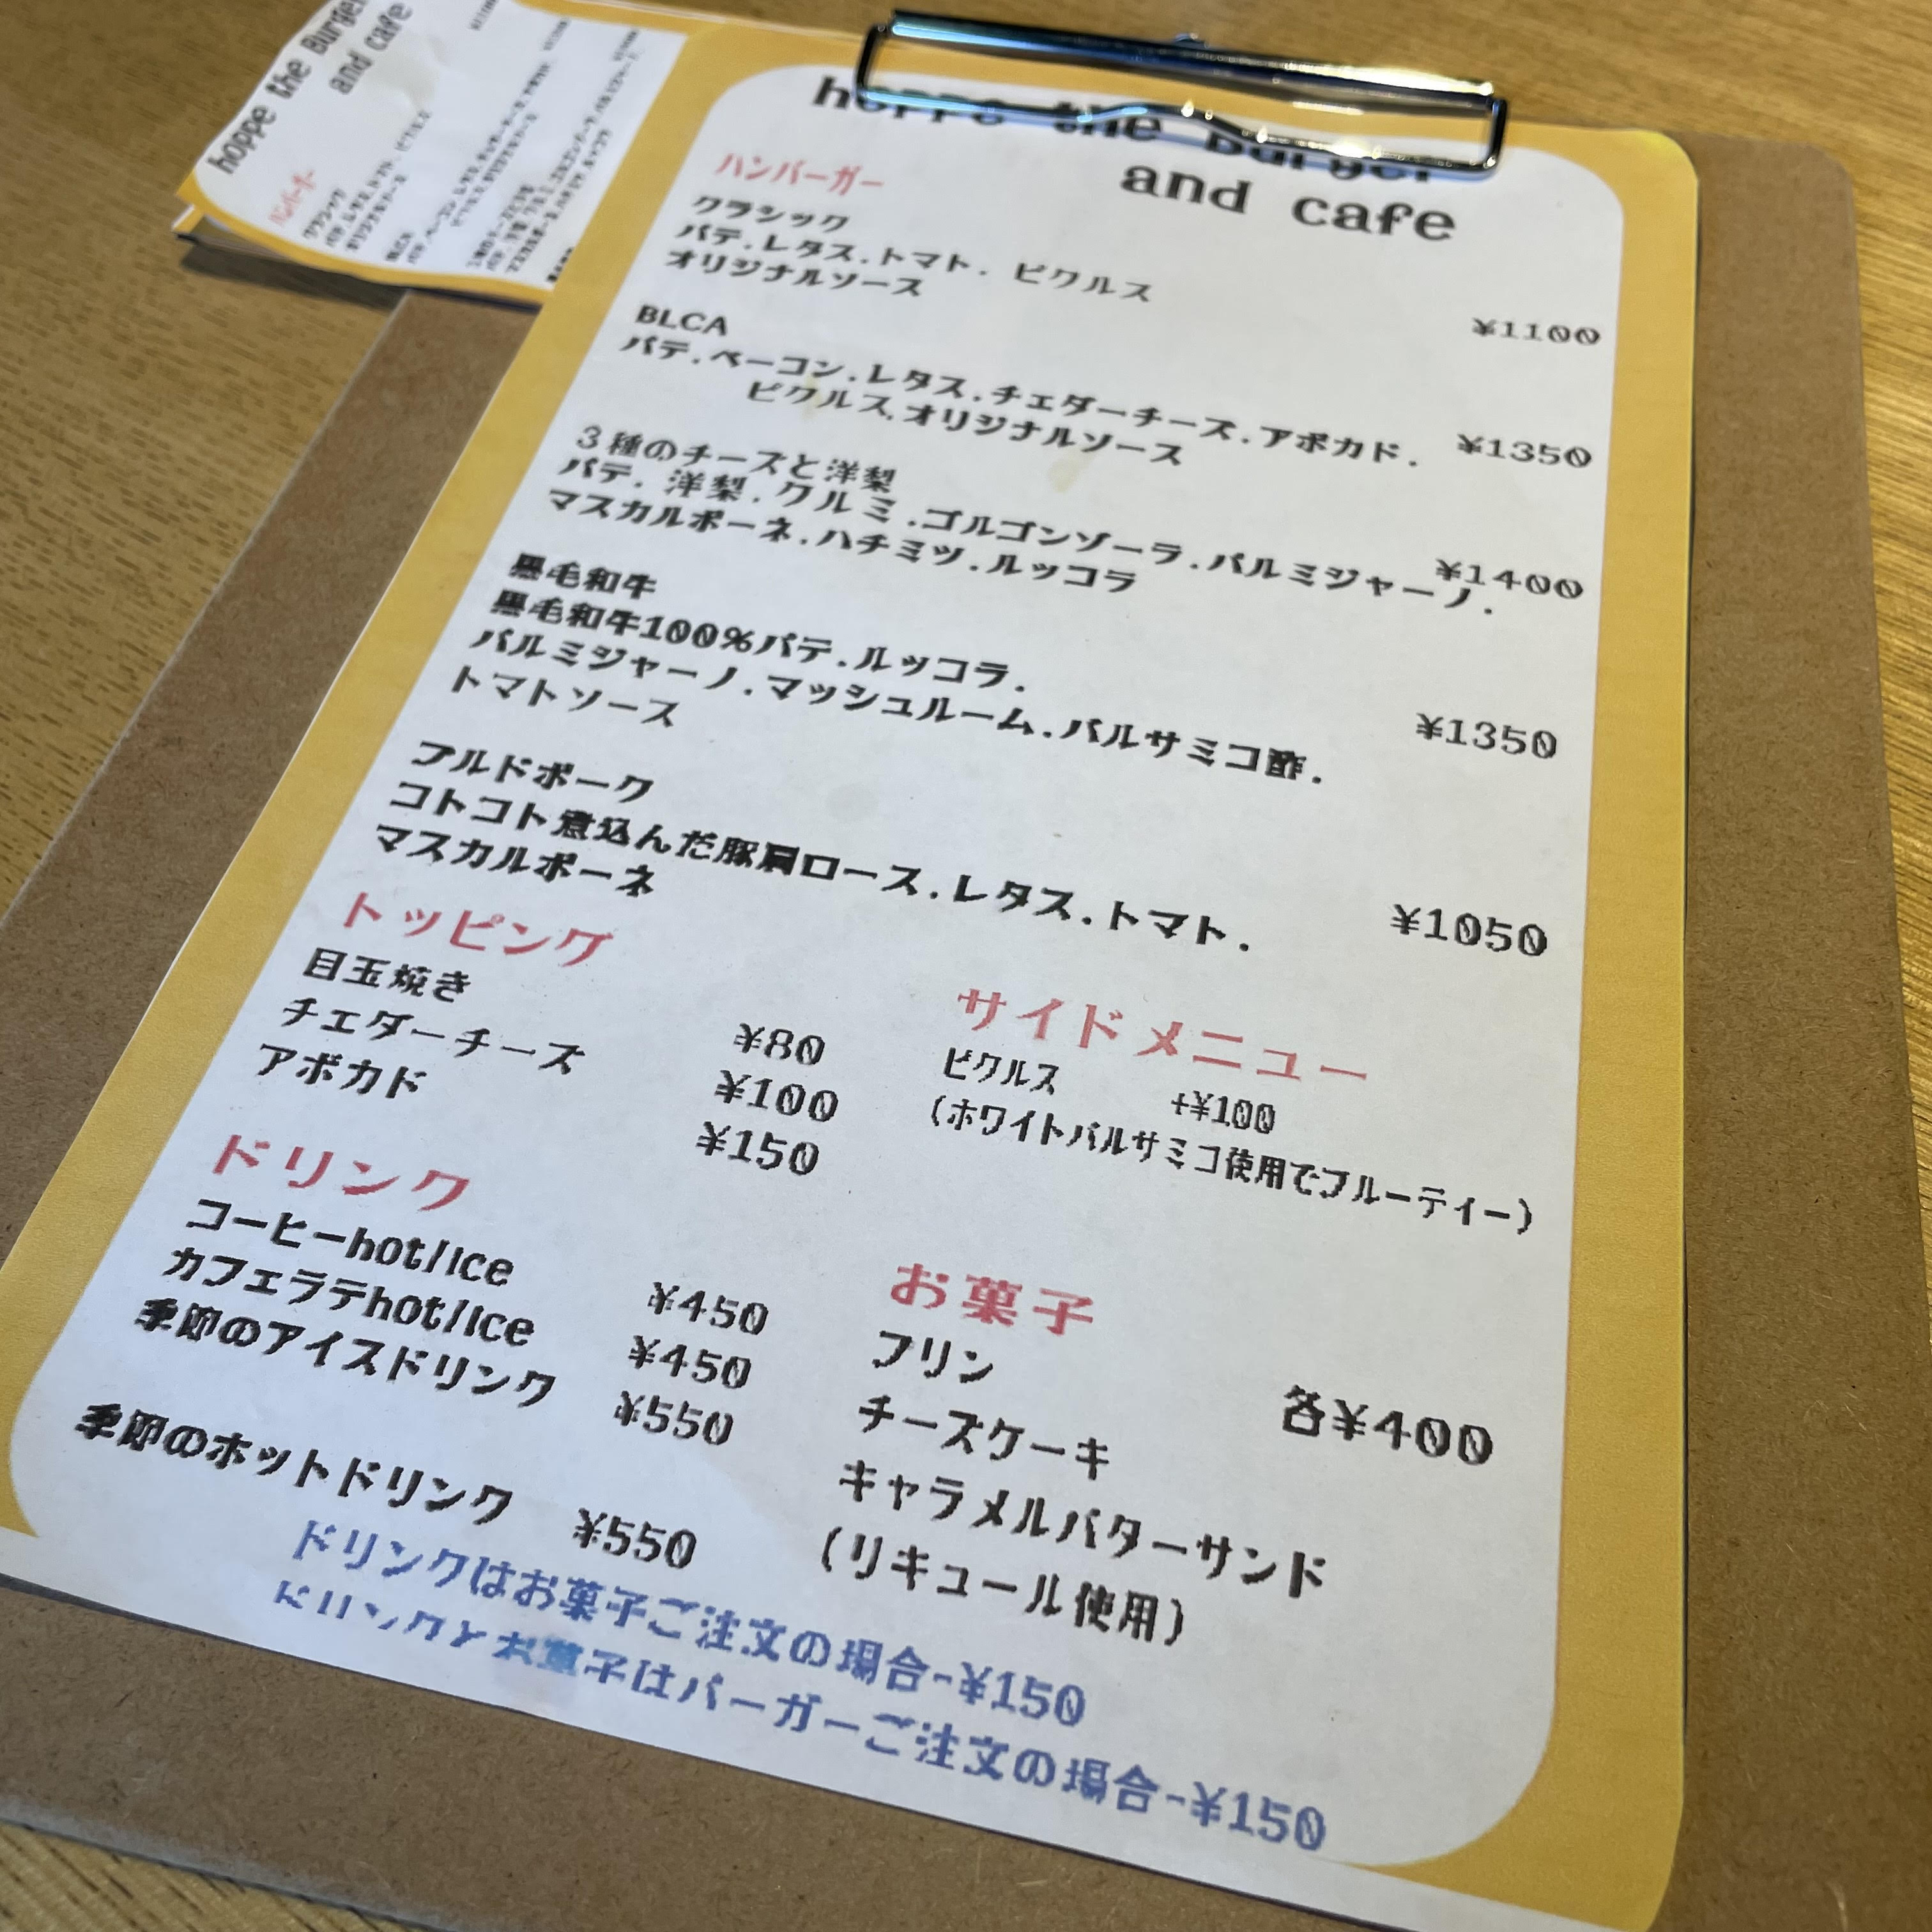 hoppe the Burger
and cafe
ハンバーガー
クラシック
パテ.レタス.トマト. ピクルス
オリジナルソース
¥1100
BLCA
パテ.ベーコン.レタス.チェダーチーズ.アボカド.
ピクルス.オリジナルソース
¥1350
3種のチーズと洋梨
パテ. 洋梨.クルミ.ゴルゴンゾーラ.パルミジャーノ.
マスカルポーネ.ハチミツ.ルッコラ
¥1400
黒毛和牛
黒毛和牛100%パテ.ルッコラ.
パルミジャーノ.マッシュルーム.バルサミコ酢.
トマトソース
¥1350
プルドポーク
コトコト煮込んだ豚肩ロース.レタス.トマト.
マスカルポーネ
¥1050
トッピング
目玉焼き ¥80
チェダーチーズ ¥100
アボカド ¥150
サイドメニュー
ピクルス +¥100
(ホワイトバルサミコ使用でフルーティー)
ドリンク
コーヒーhot/Ice ¥450
カフェラテhot/Ice ¥450
季節のアイスドリンク ¥550
季節のホットドリンク ¥550
お菓子
プリン
各¥400
チーズケーキ
キャラメルバターサンド
(リキュール使用)
ドリンクはお菓子ご注文の場合-¥150
ドリンクとお菓子はバーガーご注文の場合-¥150
hoppe the Burger
and cafe
ハンバーガー
クラシック
BLCA